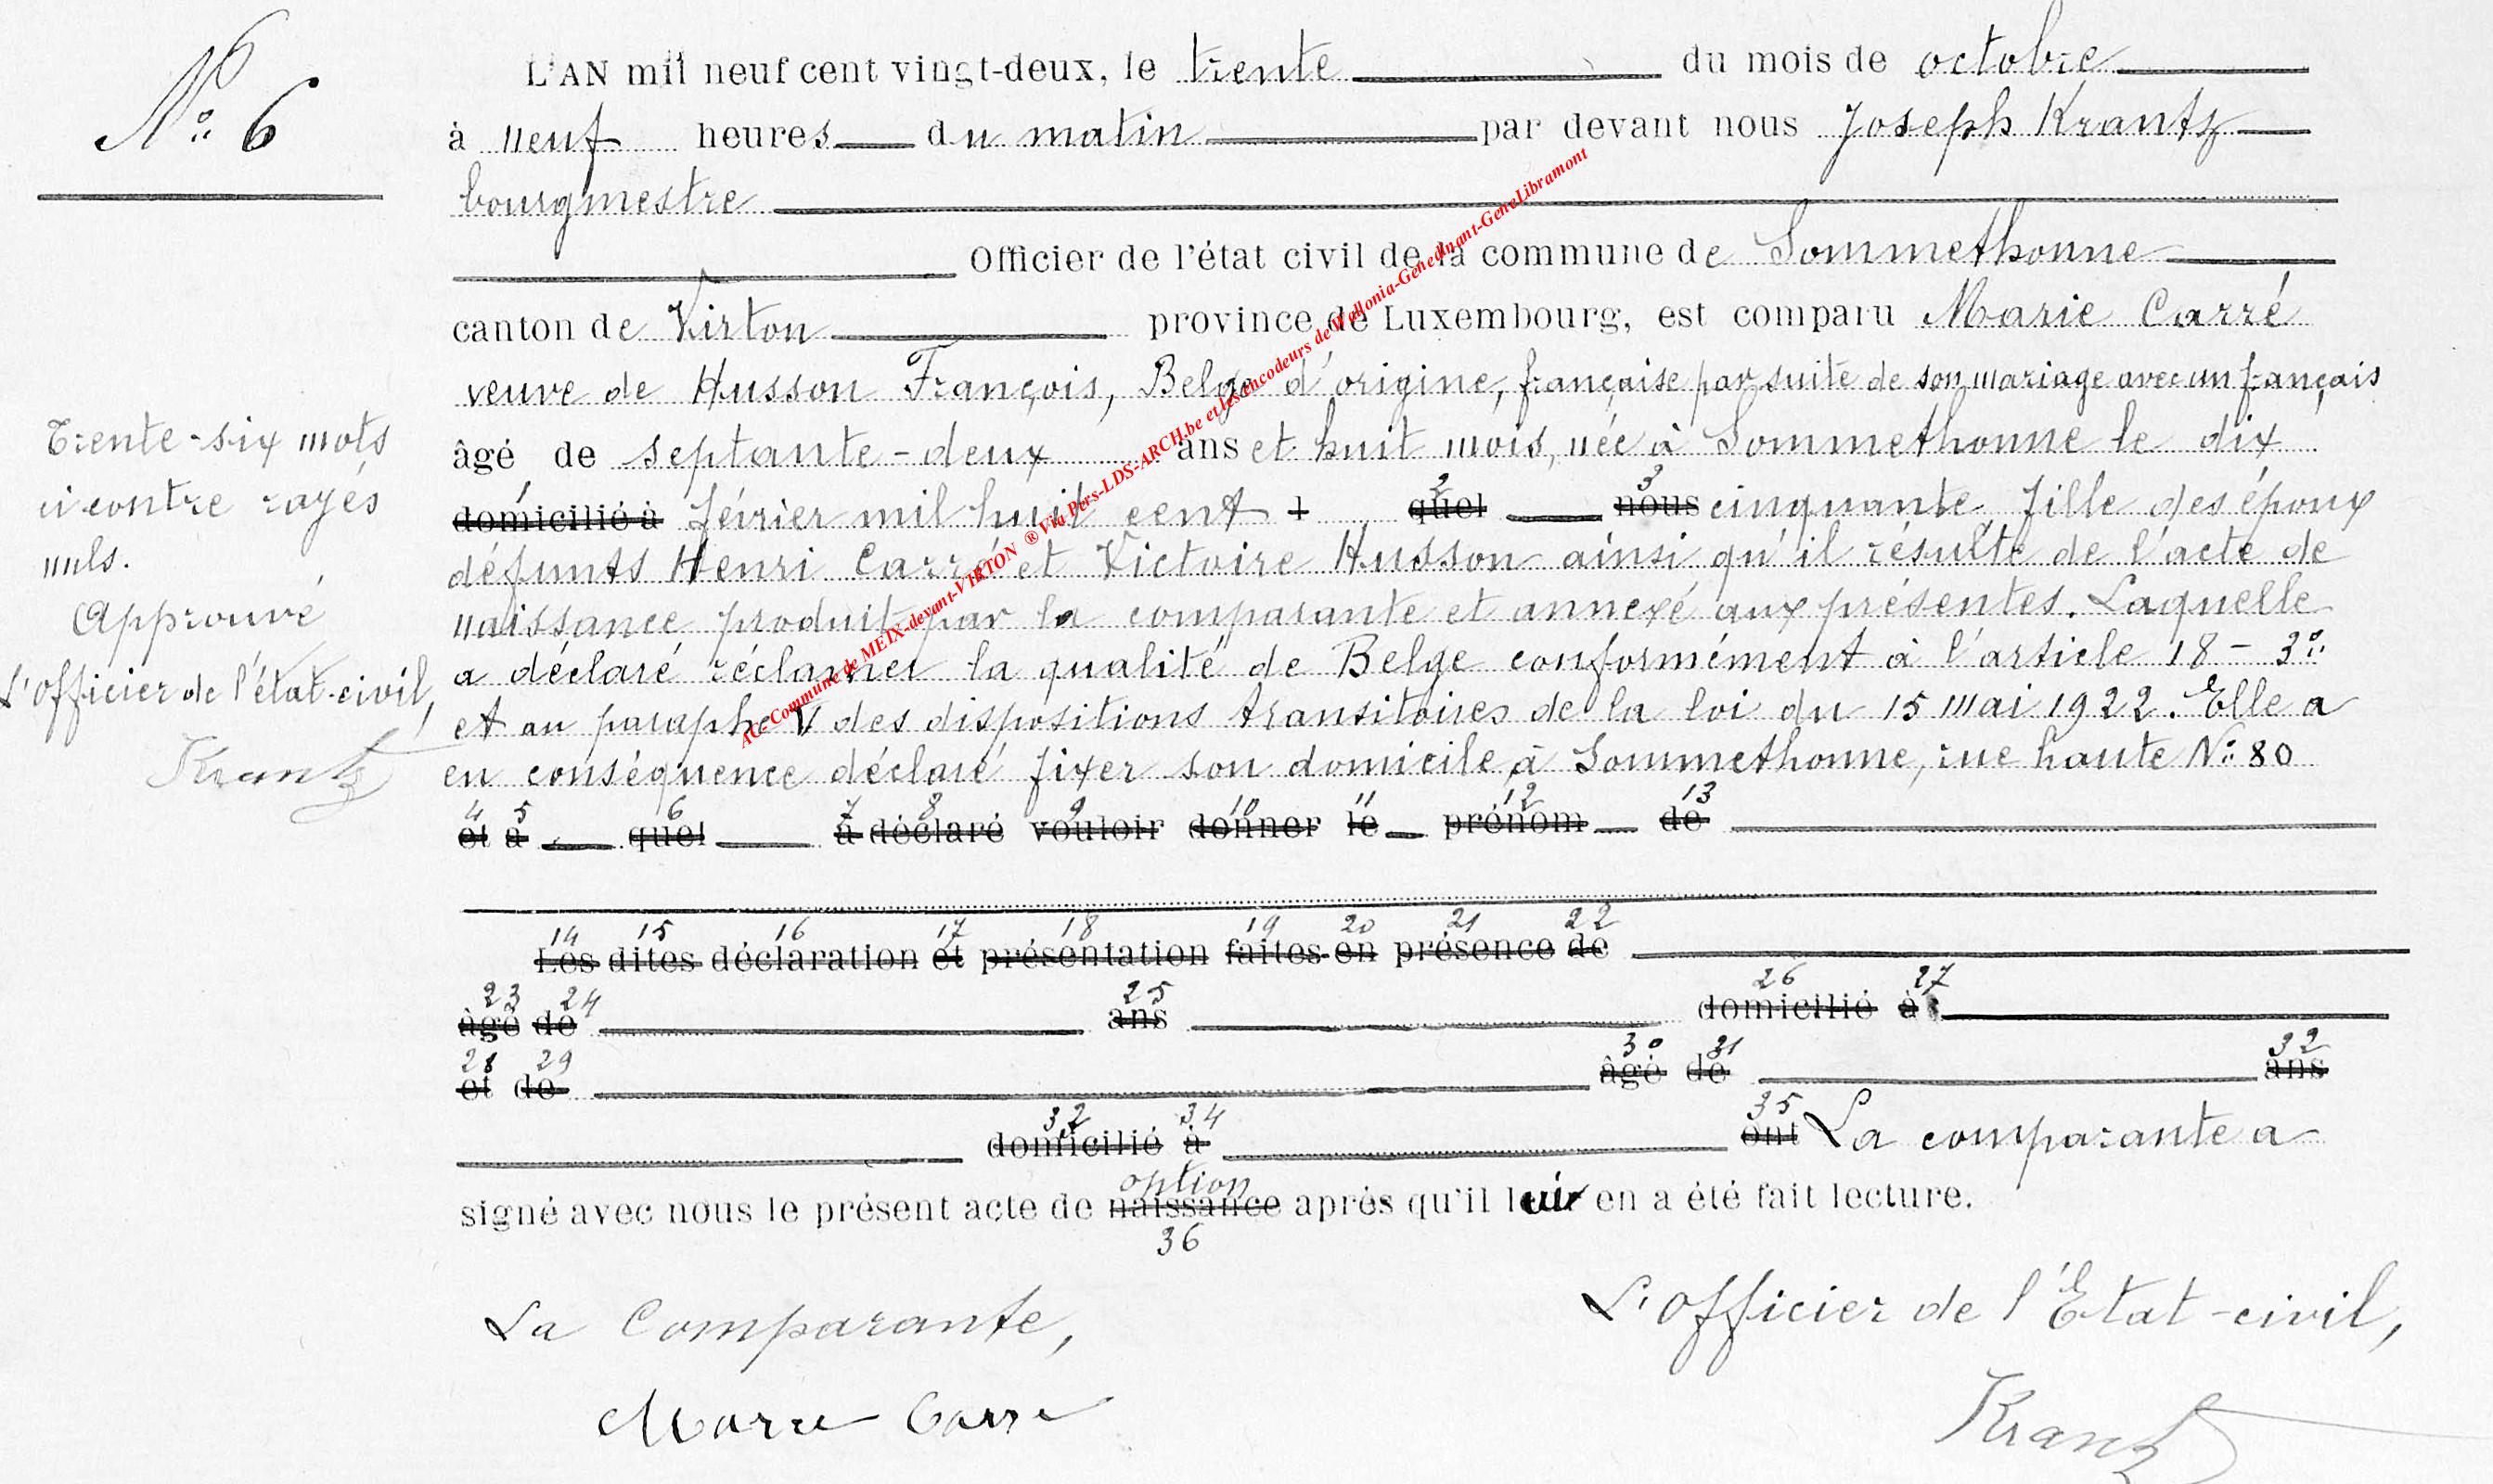 N° 6
L'AN mil neuf cent vingt-deux, le trente du mois de octobre
à neuf heures du matin par devant nous Joseph Krantz
bourgmestre
Officier de l'état civil de la commune de Sommethonne
canton de Virton province de Luxembourg, est comparu Marie Carré
veuve de Husson François, Belge d'origine, française par suite de son mariage avec un français
âgé de septante-deux ans et huit mois, née à Sommethonne le dix
domicilié à février mil huit cent l quel nous cinquante, fille des époux
1 2 3
défunts Henri Carré et Victoire Husson ainsi qu'il résulte de l'acte de
naissance produit par la comparante et annexé aux présentes. Laquelle
a déclaré réclamer la qualité de Belge conformément à l'article 18 - 3°
et au paraphe V des dispositions transitoires de la loi du 15 mai 1922. Elle a
en conséquence déclaré fixer son domicile à Sommethonne, rue haute N° 80
4 5 6 7 8 9 10 11 12 13
et a quel a déclaré vouloir donner le prénom de
14 15 16 17 18 19 20 21 22
Les dites déclaration et présentation faites en présence de
23 24 25 26 27
âgé de ans domicilié à
28 29 30 31 32
et de âgé de ans
32 34 35
domicilié à ont La comparante a
option
signé avec nous le présent acte de naissance après qu'il lui en a été fait lecture.
36
Trente-six mots
ci contre rayés
nuls.
Approuvé
L'officier de l'état-civil,
Krantz
La Comparante,
Marie Carre
L'officier de l'Etat-civil,
Krantz
AC-Commune de MEIX-devant-VIRTON ® Via Pers-LDS-ARCH.be et les encodeurs de Wallonia-Genedinant-GeneLibramont